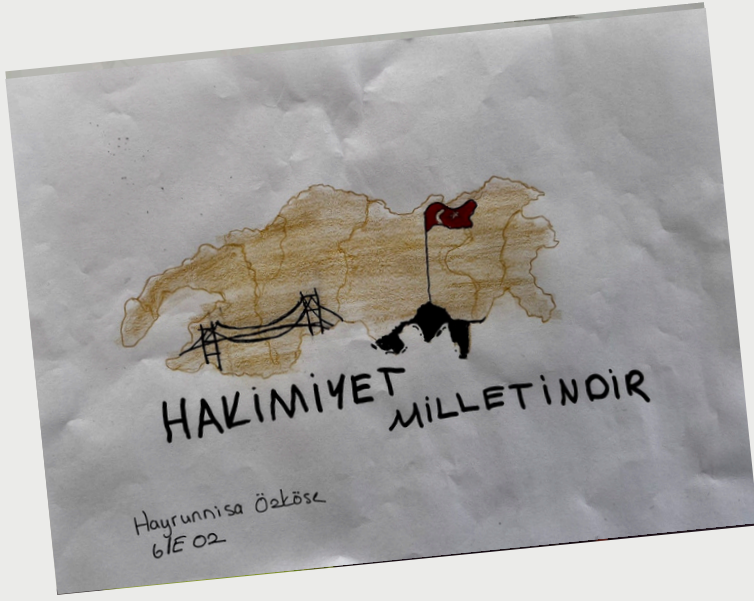 HAKİMİYET
MİLLETİNDİR
Hayrunnisa Özköse
6/E 02